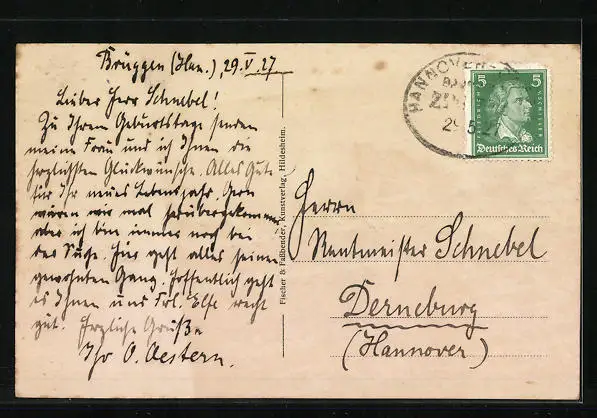 Brüggen (Han.), 29.V.27
Lieber Herr Schnebel!
Zu Ihrem Geburtstage senden
meine Frau und ich Ihnen die
herzlichsten Glückwünsche. Alles Gute
für Ihr neues Lebensjahr. Gern
wären wir mal herübergekommen
aber ich bin immer noch bei
der Suche. Hier geht alles seinen
gewohnten Gang. Hoffentlich geht
es Ihnen und Frl. Else recht
gut. Herzliche Grüße
Ihr O. Oestern.
Fischer & Faßbender, Kunstverlag, Hildesheim.
HANNOVER
29.5.27
5 5
FRIEDRICH V SCHILLER
Deutsches Reich
Herrn
Rentmeister Schnebel
Derneburg
(Hannover)